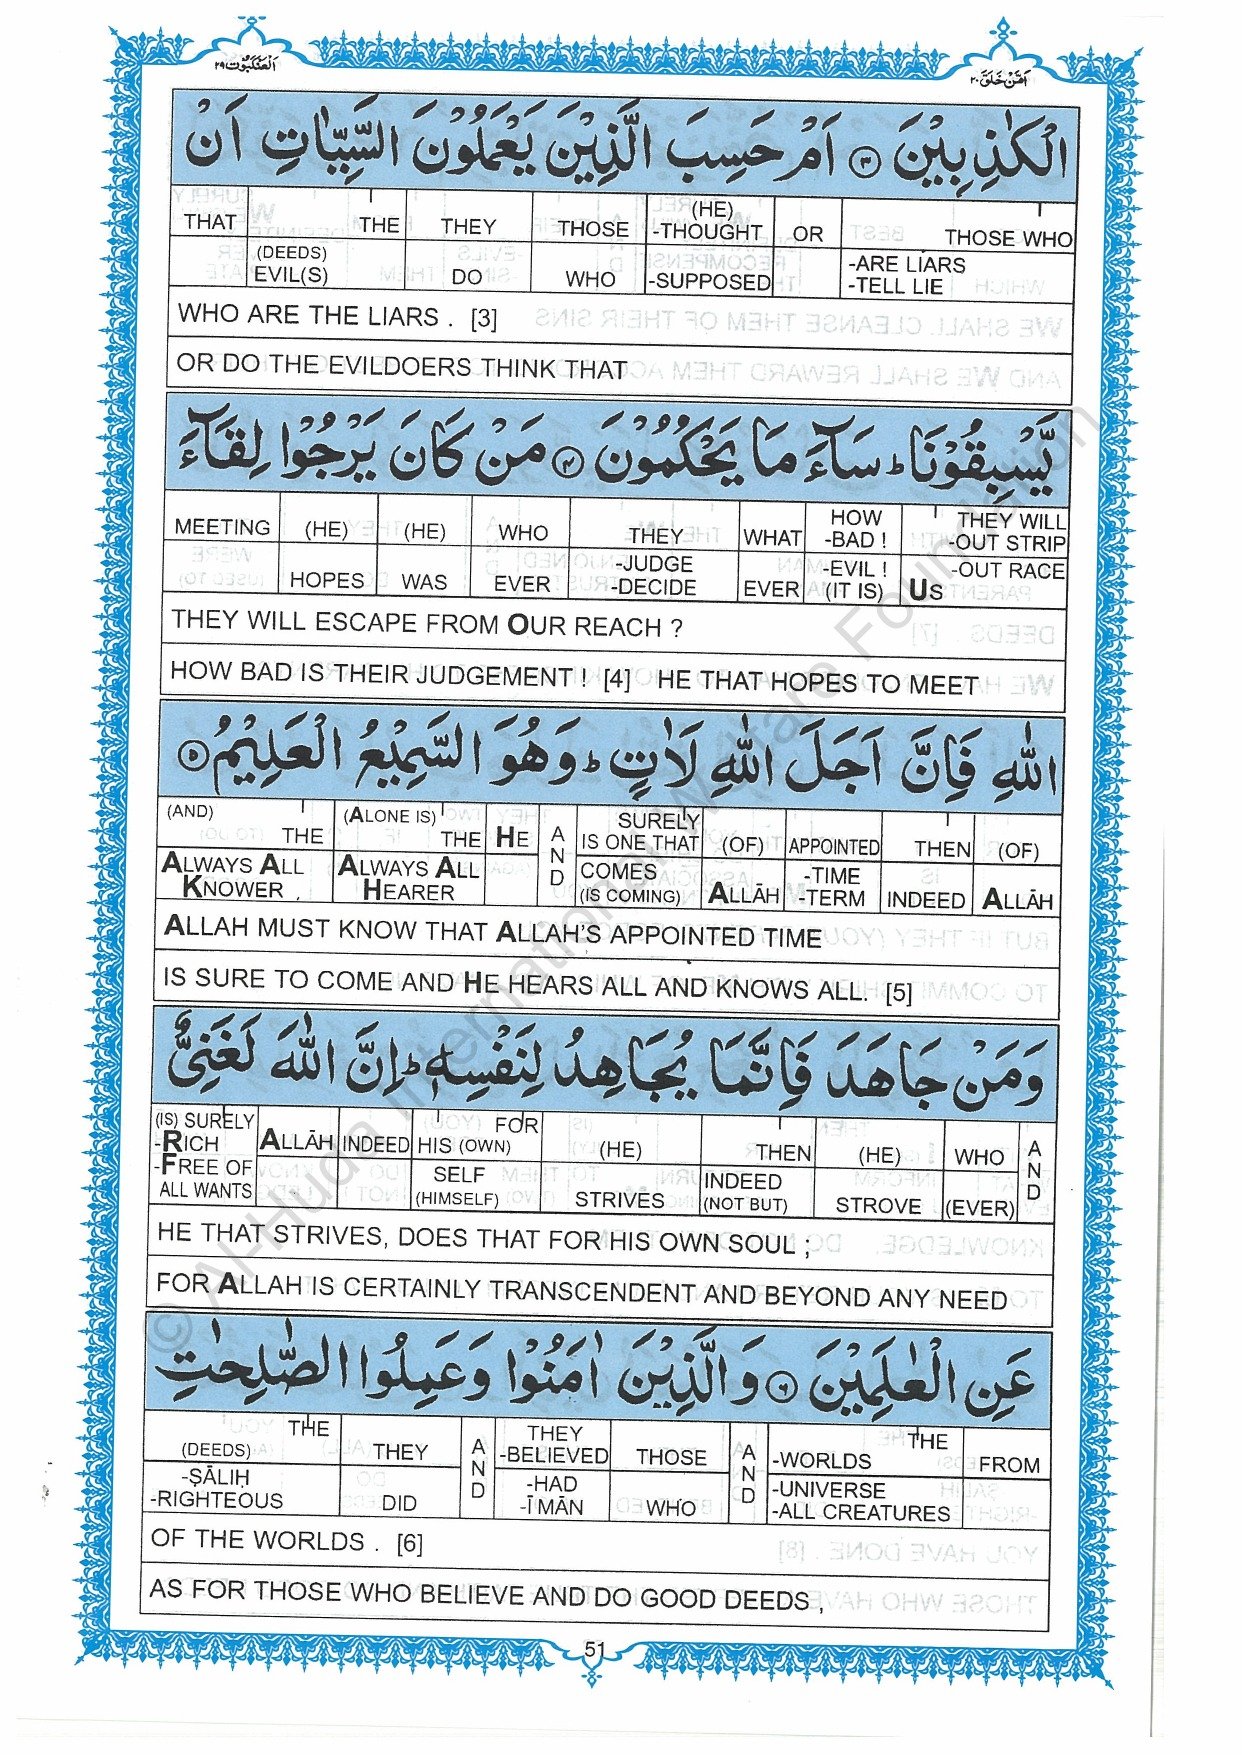 اٰمَّنْ خَلَقَ ٢٠
اَلْعَنْكَبُوْت ٢٩
الْكٰذِبِيْنَ ۝٣ اَمْ حَسِبَ الَّذِيْنَ يَعْمَلُوْنَ السَّيِّاٰتِ اَنْ
THAT THE THEY THOSE (HE) -THOUGHT OR THOSE WHO
(DEEDS) EVIL(S) DO WHO -SUPPOSED -ARE LIARS -TELL LIE
WHO ARE THE LIARS . [3]
OR DO THE EVILDOERS THINK THAT
يَّسْبِقُوْنَا ؕ سَآءَ مَا يَحْكُمُوْنَ ۝٤ مَنْ كَانَ يَرْجُوْا لِقَآءَ
MEETING (HE) (HE) WHO THEY WHAT HOW -BAD ! THEY WILL -OUT STRIP
HOPES WAS EVER -JUDGE -DECIDE EVER -EVIL ! (IT IS) US -OUT RACE
THEY WILL ESCAPE FROM OUR REACH ?
HOW BAD IS THEIR JUDGEMENT ! [4] HE THAT HOPES TO MEET
اللّٰهِ فَاِنَّ اَجَلَ اللّٰهِ لَاٰتٍ ؕ وَهُوَ السَّمِيْعُ الْعَلِيْمُ ۝٥
(AND) THE (ALONE IS) THE HE AND SURELY IS ONE THAT (OF) APPOINTED THEN (OF)
ALWAYS ALL KNOWER . ALWAYS ALL HEARER COMES (IS COMING) ALLĀH -TIME -TERM INDEED ALLĀH
ALLAH MUST KNOW THAT ALLAH'S APPOINTED TIME
IS SURE TO COME AND HE HEARS ALL AND KNOWS ALL. [5]
وَمَنْ جَاهَدَ فَاِنَّمَا يُجَاهِدُ لِنَفْسِهٖ ؕ اِنَّ اللّٰهَ لَغَنِىٌّ
(IS) SURELY -RICH ALLĀH INDEED FOR HIS (OWN) (HE) THEN (HE) WHO AND
-FREE OF ALL WANTS SELF (HIMSELF) STRIVES INDEED (NOT BUT) STROVE (EVER)
HE THAT STRIVES, DOES THAT FOR HIS OWN SOUL ;
FOR ALLAH IS CERTAINLY TRANSCENDENT AND BEYOND ANY NEED
عَنِ الْعٰلَمِيْنَ ۝٦ وَالَّذِيْنَ اٰمَنُوْا وَعَمِلُوا الصّٰلِحٰتِ
THE (DEEDS) THEY AND THEY -BELIEVED THOSE AND THE -WORLDS FROM
-ṢĀLIḤ -RIGHTEOUS DID -HAD -ĪMĀN WHO -UNIVERSE -ALL CREATURES
OF THE WORLDS . [6]
AS FOR THOSE WHO BELIEVE AND DO GOOD DEEDS ,
51
© Al-Huda International Welfare Foundation